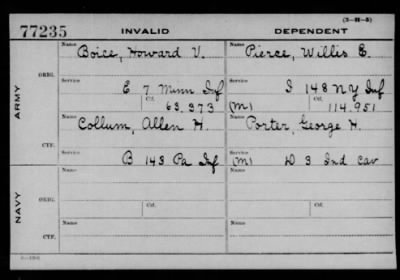 (3-H-5)
77235 INVALID DEPENDENT
Name Name
Boice, Howard V. Pierce, Willis E.
ORIG.
Service Service
E 7 Minn Inf I 148 NY Inf
Ctf. Ctf.
63.373 (M) 114.951
ARMY
Name Name
Collum, Allen H. Porter, George H.
CTF.
Service Service
B 143 Pa Inf (M) D 3 Ind Cav
Name Name
ORIG.
Ctf. Ctf.
NAVY
Name Name
CTF.